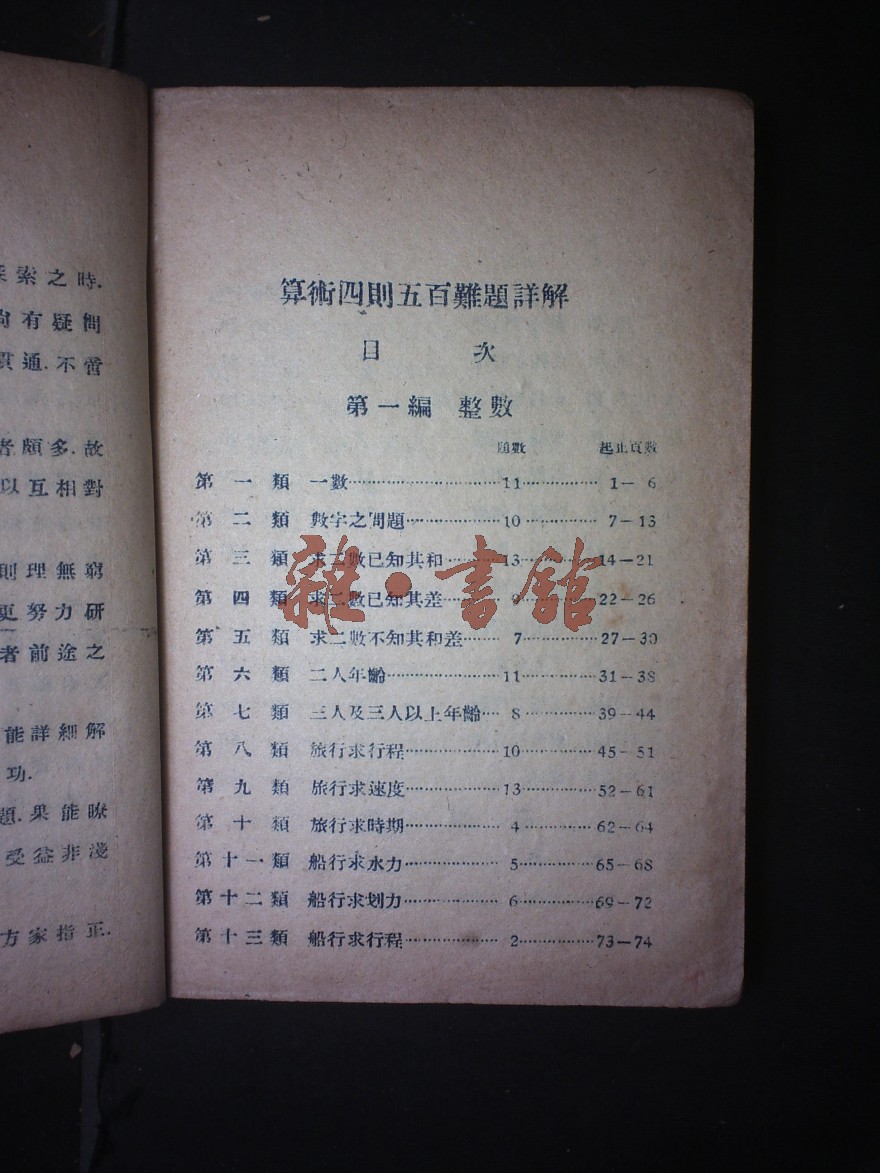 索之時.
有疑問
貫通.不當
者頗多.故
以互相對
則理無窮
更努力研
者前途之
能詳細解
功.
題.果能瞭
受益非淺
方家指正.
算術四則五百難題詳解
目 次
第一編 整數
題數 起止頁數
第一類 一數………………………11……………1—6
第二類 數字之問題………………10……………7—13
第三類 求二數已知其和…………13……………14—21
第四類 求二數已知其差…………9……………22—26
第五類 求二數不知其和差………7……………27—30
第六類 二人年齡…………………11……………31—38
第七類 三人及三人以上年齡…8……………39—44
第八類 旅行求行程………………10……………45—51
第九類 旅行求速度………………13……………52—61
第十類 旅行求時期………………4……………62—64
第十一類 船行求水力………………5……………65—68
第十二類 船行求划力………………6……………69—72
第十三類 船行求行程………………2……………73—74
雜·書館